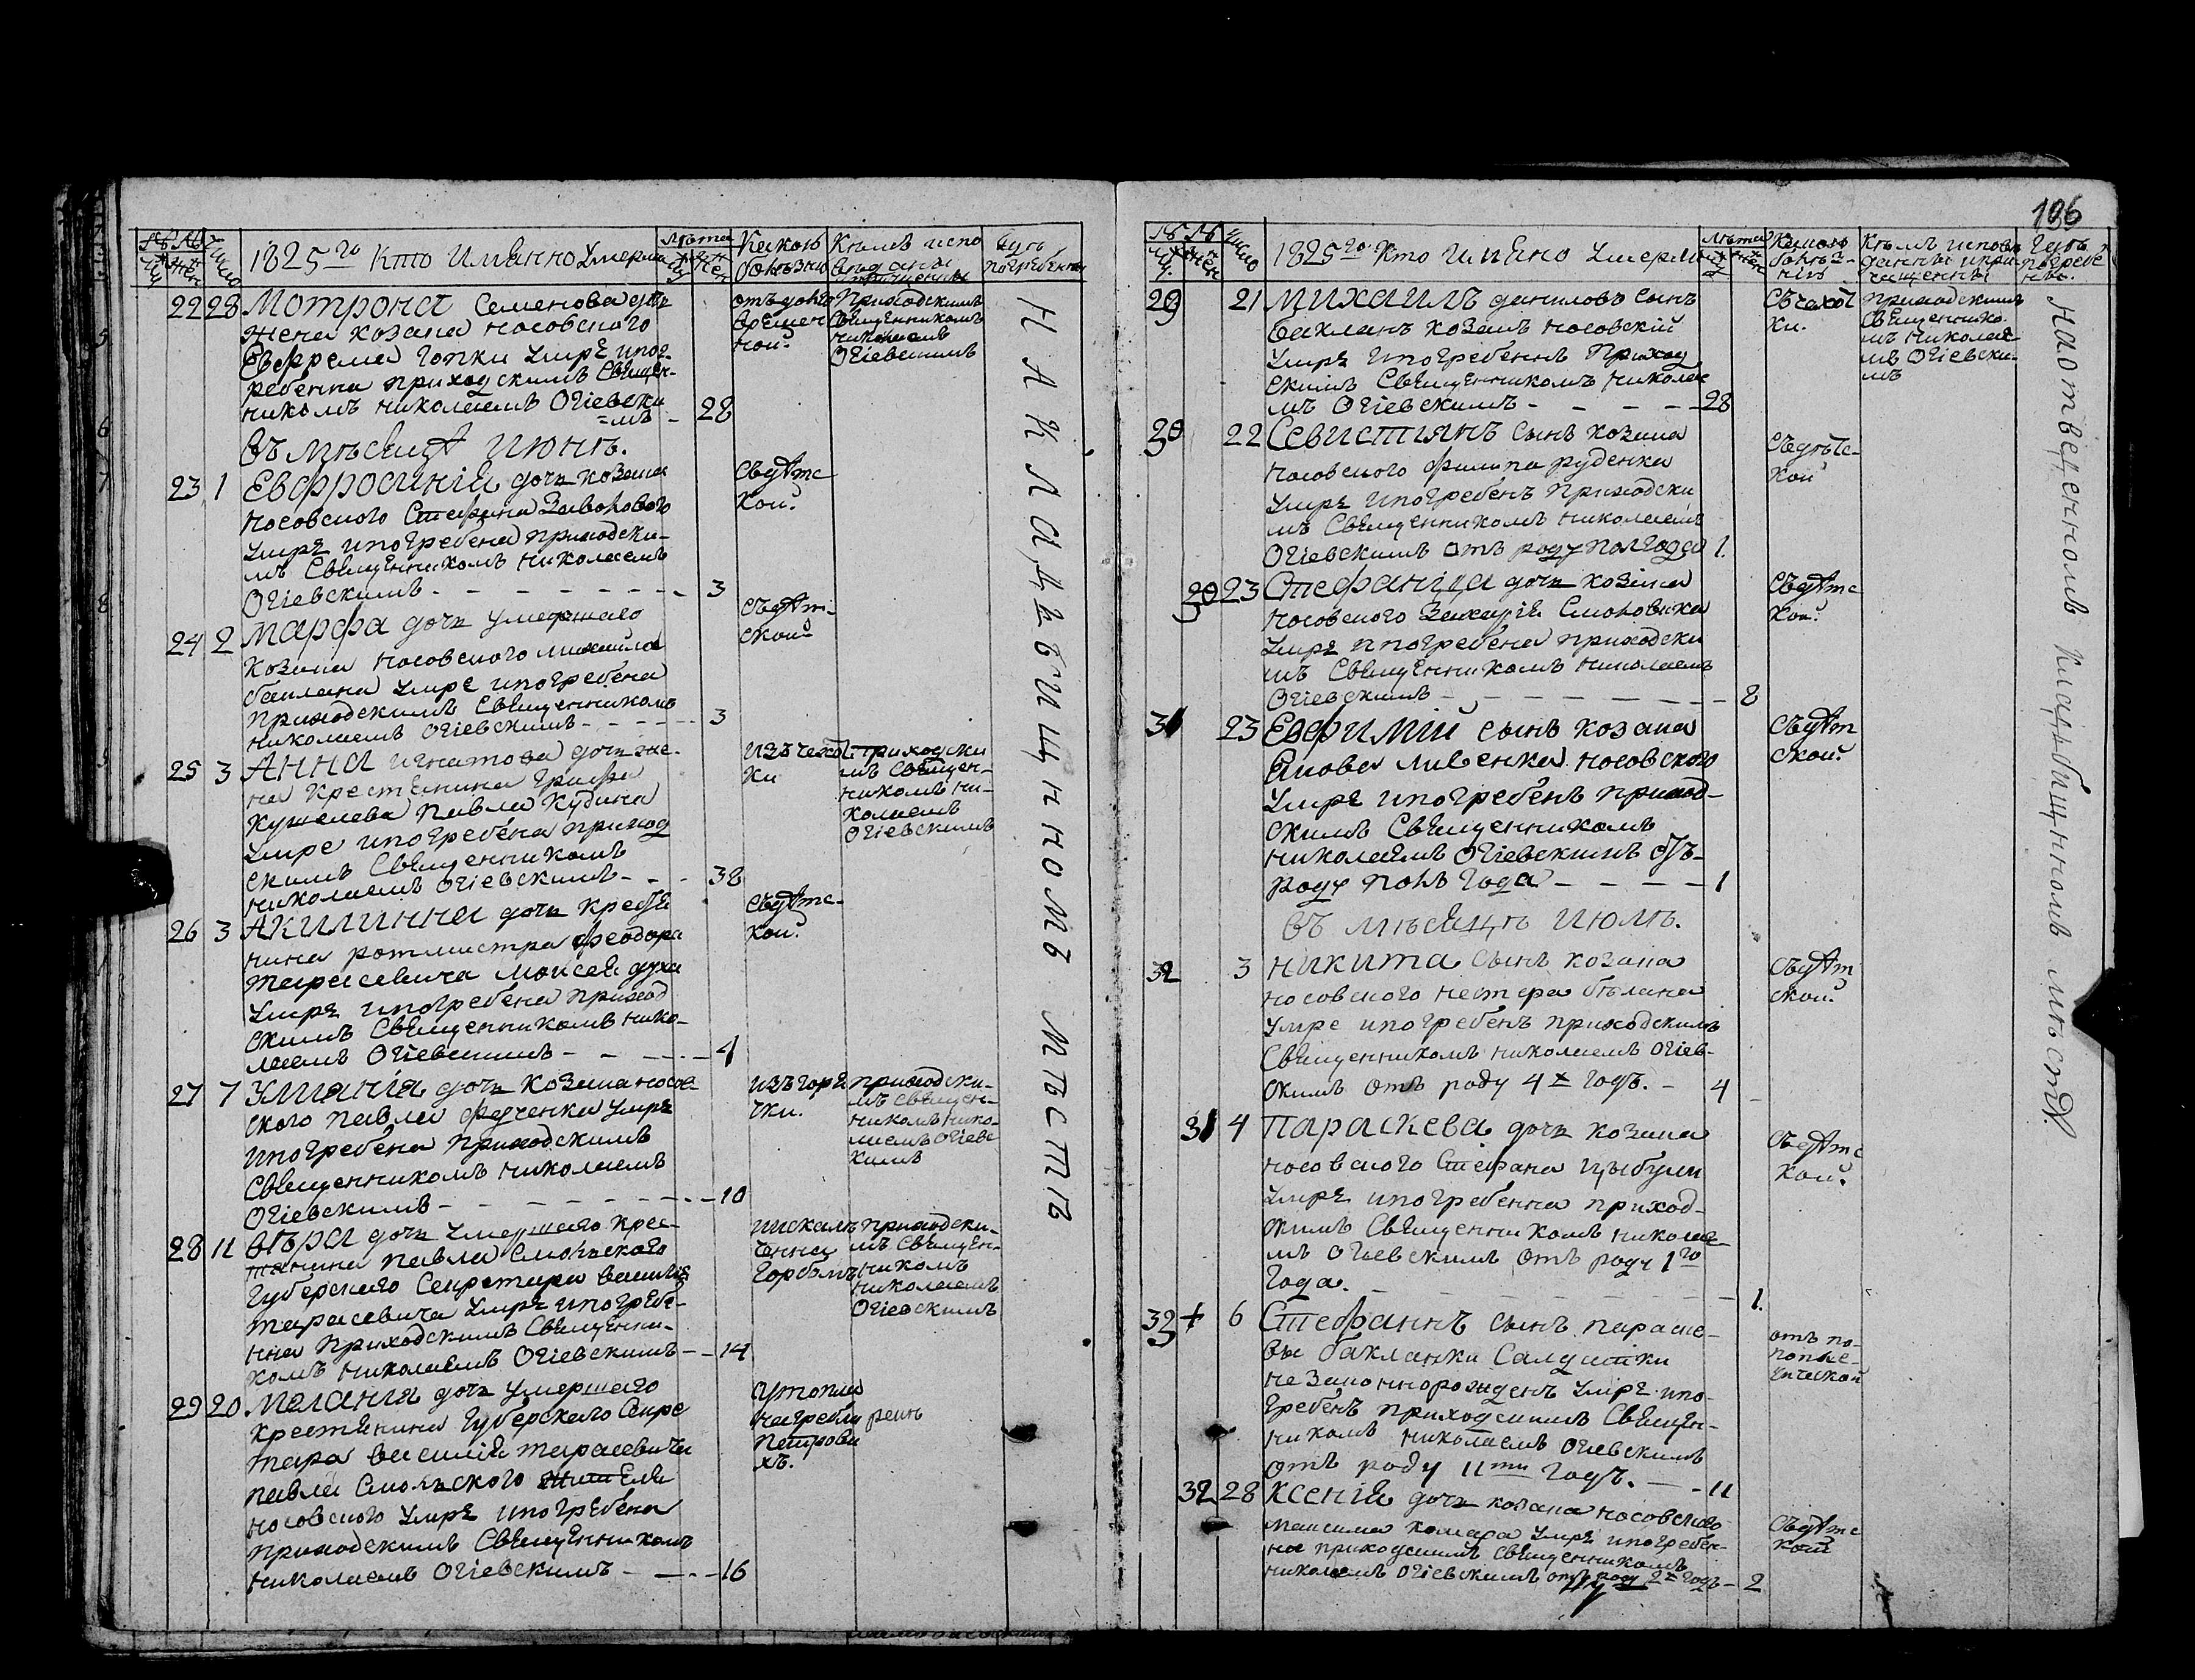 1825го Кто Имянно Умерли
Лѣта
Какою болѣзни
Кѣмъ испо
вѣданы
Гдѣ погребенны
22 28 Мотрона Семенова дочь
жена козака носовского
Евфрема Гопки умре и пог-
ребенна приходскимъ Священ-
никомъ николаемъ Огіевски
=мъ - 28
отъ долго
времен
ной.
Приходскимъ
Священникомъ
николаемъ
Огіевскимъ
Въ мѣсяцѣ июнѣ.
23 1 Евфросинія дочь козака
носовского Стефана Заволокового
умре и погребена приходски-
мъ Священникомъ николаемъ
Огіевскимъ - 3
Съдѣтс
кой.
24 2 Марфа дочь умершаго
козака носовского михайла
баклана умре и погребена
приходскимъ Священникомъ
николаемъ Огіевскимъ - 3
Съдѣт-
ской
25 3 Анна игнатова дочь же-
на крестянина Графа
Кушелева Павла Кудина
умре и погребена приход
скимъ Священникомъ
николаемъ Огіевскимъ - 38
изъ чехот
ки
приходски
мъ Священ-
никомъ ни-
колаемъ
Огіевскимъ
26 3 Акилинна дочь крестя
нина ротмистра феодора
тарасевича Моисея духа
умре и погребена приход
скимъ Священникомъ нико-
лаемъ Огіевскимъ - 4
Съдѣтс-
кой.
27 7 Улианія дочь козака носов-
ского павла федченка умре
и погребена приходскимъ
Священникомъ николаемъ
Огіевскимъ - 10
изъ горя
чки.
приходски-
мъ Священ-
никомъ нико-
лаемъ Огіевс
кимъ
28 11 Вѣра дочь умершаго крес-
тянина павла Смольского
Губерского Секретара василія
тарасевича умре и погребе-
нна приходскимъ Священни-
комъ николаемъ Огіевскимъ - 14
приходски-
мъ Священ-
никомъ
николаемъ
Огіевскимъ
29 20 Меланія дочь умершаго
крестянина Губерского Секре
тара василія тарасевича
павла Смольского жителя
носовского умре и погребена
приходскимъ Священникомъ
николаемъ Огіевскимъ - 16
Утопла
на гребли
петрова
хъ.
НА КЛАДБИЩННОМЪ МѢСТѢ
186
1825го Кто Имяно Умерли
Лѣта
Какою
болѣз-
нію
Кѣмъ исповѣ
данны и при
чащенны
Гдѣ
погребе
ны.
29 21 Михаилъ даниловъ сынъ
бакланъ козакъ носовскій
умре и погребеннъ Приход
скимъ Священникомъ николае
мъ Огіевскимъ - 28
Съ чахот
ки.
приходскимъ
Священнико-
мъ николае-
мъ Огіевски-
мъ
30 22 Севистиянъ сынъ козака
носовского филипа руденка
умре и погребенъ приходски
мъ Священникомъ николаемъ
Огіевскимъ отъ роду полгода 1.
Съдѣтс-
кой
30 23 Стефанида дочь козака
носовского Захарія Смоловика
умре и погребена приходски
мъ Священникомъ николаемъ
Огіевскимъ - 8
Съдѣтс
кой.
31 23 Евфимій сынъ козака
Якова ливенка носовского
умре и погребенъ приход-
скимъ Священникомъ
николаемъ Огіевскимъ отъ
роду полъ года - 1
Съдѣт
ской.
Въ мѣсяцѣ июлѣ.
32 3 Никита сынъ козака
носовского нестера білана
умре и погребенъ приходскимъ
Священникомъ николаемъ Огіев-
скимъ отъ роду 4х годъ. - 4
Съдѣт
ской.
31 4 Параскева дочь козака
носовского Стефана Цыбули
умре и погребенна приход-
скимъ Священникомъ николае-
мъ Огіевскимъ отъ роду 1го
года. - 1.
Съдѣтс
кой.
33 + 6 Стефаннъ сынъ параске-
вы бакланки Салдатки
незаконнорожденъ умре и по-
гребенъ приходскимъ Священ-
никомъ николаемъ Огіевскимъ
отъ роду 11ти годъ. - 11
32 28 Ксенія дочь козака носовского
Максима комара умре и погребен-
на приходскимъ Священникомъ
николаемъ Огіевскимъ отъ роду 2х годъ - 2
Съдѣтс
кой
На отведенномъ кладбищномъ мѣстѣ.